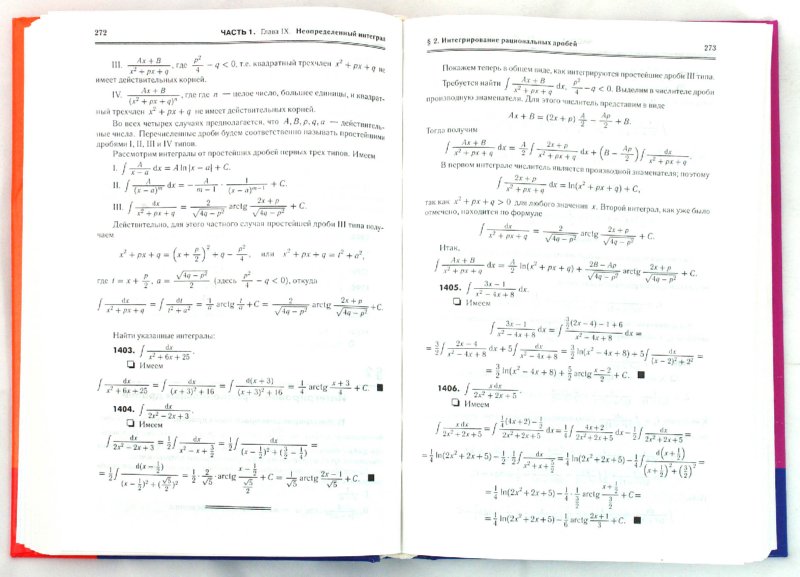 272 ЧАСТЬ 1. Глава IX. Неопределенный интеграл
III. \frac{Ax + B}{x^2 + px + q}, где \frac{p^2}{4} − q < 0, т.е. квадратный трехчлен x^2 + px + q не
имеет действительных корней.
IV. \frac{Ax + B}{(x^2 + px + q)^n}, где где n — целое число, большее единицы, и квадрат-
ный трехчлен x^2 + px + q не имеет действительных корней.
Во всех четырех случаях предполагается, что A, B, p, q, a — действитель-
ные числа. Перечисленные дроби будем соответственно называть простейшими
дробями I, II, III и IV типов.
Рассмотрим интегралы от простейших дробей первых трех типов. Имеем
I. ∫ \frac{A}{x − a} dx = A ln|x − a| + C.
II. ∫ \frac{A}{(x − a)^m} dx = −\frac{A}{m − 1} · \frac{1}{(x − a)^{m−1}} + C.
III. ∫ \frac{dx}{x^2 + px + q} = \frac{2}{\sqrt{4q − p^2}} arctg \frac{2x + p}{\sqrt{4q − p^2}} + C.
Действительно, для этого частного случая простейшей дроби III типа полу-
чаем
x^2 + px + q = (x + \frac{p}{2})^2 + q − \frac{p^2}{4}, или x^2 + px + q = t^2 + a^2,
где t = x + \frac{p}{2}, a = \frac{\sqrt{4q − p^2}}{2} (здесь \frac{p^2}{4} − q < 0), откуда
∫ \frac{dx}{x^2 + px + q} = ∫ \frac{dt}{t^2 + a^2} = \frac{1}{a} arctg \frac{t}{a} + C = \frac{2}{\sqrt{4q − p^2}} arctg \frac{2x + p}{\sqrt{4q − p^2}} + C.
Найти указанные интегралы:
1403. ∫ \frac{dx}{x^2 + 6x + 25}.
❑ Имеем
∫ \frac{dx}{x^2 + 6x + 25} = ∫ \frac{dx}{(x + 3)^2 + 16} = ∫ \frac{d(x + 3)}{(x + 3)^2 + 16} = \frac{1}{4} arctg \frac{x + 3}{4} + C. ■
1404. ∫ \frac{dx}{2x^2 − 2x + 3}.
❑ Имеем
∫ \frac{dx}{2x^2 − 2x + 3} = \frac{1}{2} ∫ \frac{dx}{x^2 − x + \frac{3}{2}} = \frac{1}{2} ∫ \frac{dx}{(x − \frac{1}{2})^2 + (\frac{3}{2} − \frac{1}{4})} =
= \frac{1}{2} ∫ \frac{d(x − \frac{1}{2})}{(x − \frac{1}{2})^2 + (\frac{\sqrt{5}}{2})^2} = \frac{1}{2} · \frac{2}{\sqrt{5}} · arctg \frac{x − \frac{1}{2}}{\frac{\sqrt{5}}{2}} + C = \frac{1}{\sqrt{5}} arctg \frac{2x − 1}{\sqrt{5}} + C. ■
§ 2. Интегрирование рациональных дробей 273
Покажем теперь в общем виде, как интегрируются простейшие дроби III типа.
Требуется найти ∫ \frac{Ax + B}{x^2 + px + q} dx, \frac{p^2}{4} − q < 0. Выделим в числителе дроби
производную знаменателя. Для этого числитель представим в виде
Ax + B = (2x + p) \frac{A}{2} − \frac{Ap}{2} + B.
Тогда получим
∫ \frac{Ax + B}{x^2 + px + q} dx = \frac{A}{2} ∫ \frac{2x + p}{x^2 + px + q} dx + (B − \frac{Ap}{2}) ∫ \frac{dx}{x^2 + px + q}.
В первом интеграле числитель является производной знаменателя; поэтому
∫ \frac{2x + p}{x^2 + px + q} dx = ln(x^2 + px + q) + C,
так как x^2 + px + q > 0 для любого значения x. Второй интеграл, как уже было
отмечено, находится по формуле
∫ \frac{dx}{x^2 + px + q} = \frac{2}{\sqrt{4q − p^2}} arctg \frac{2x + p}{\sqrt{4q − p^2}} + C.
Итак,
∫ \frac{Ax + B}{x^2 + px + q} dx = \frac{A}{2} ln(x^2 + px + q) + \frac{2B − Ap}{\sqrt{4q − p^2}} arctg \frac{2x + p}{\sqrt{4q − p^2}} + C.
1405. ∫ \frac{3x − 1}{x^2 − 4x + 8} dx.
❑ Имеем
∫ \frac{3x − 1}{x^2 − 4x + 8} dx = ∫ \frac{\frac{3}{2}(2x − 4) − 1 + 6}{x^2 − 4x + 8} dx =
= \frac{3}{2} ∫ \frac{2x − 4}{x^2 − 4x + 8} dx + 5 ∫ \frac{dx}{x^2 − 4x + 8} = \frac{3}{2} ln(x^2 − 4x + 8) + 5 ∫ \frac{dx}{(x − 2)^2 + 2^2} =
= \frac{3}{2} ln(x^2 − 4x + 8) + \frac{5}{2} arctg \frac{x − 2}{2} + C. ■
1406. ∫ \frac{x dx}{2x^2 + 2x + 5}.
❑ Имеем
∫ \frac{x dx}{2x^2 + 2x + 5} = ∫ \frac{\frac{1}{4}(4x + 2) − \frac{1}{2}}{2x^2 + 2x + 5} dx = \frac{1}{4} ∫ \frac{4x + 2}{2x^2 + 2x + 5} dx − \frac{1}{2} ∫ \frac{dx}{2x^2 + 2x + 5} =
= \frac{1}{4} ln(2x^2 + 2x + 5) − \frac{1}{2} · \frac{1}{2} ∫ \frac{dx}{x^2 + x + \frac{5}{2}} = \frac{1}{4} ln(2x^2 + 2x + 5) − \frac{1}{4} ∫ \frac{d(x + \frac{1}{2})}{(x + \frac{1}{2})^2 + (\frac{3}{2})^2} =
= \frac{1}{4} ln(2x^2 + 2x + 5) − \frac{1}{4} · \frac{1}{\frac{3}{2}} arctg \frac{x + \frac{1}{2}}{\frac{3}{2}} + C =
= \frac{1}{4} ln(2x^2 + 2x + 5) − \frac{1}{6} arctg \frac{2x + 1}{3} + C. ■